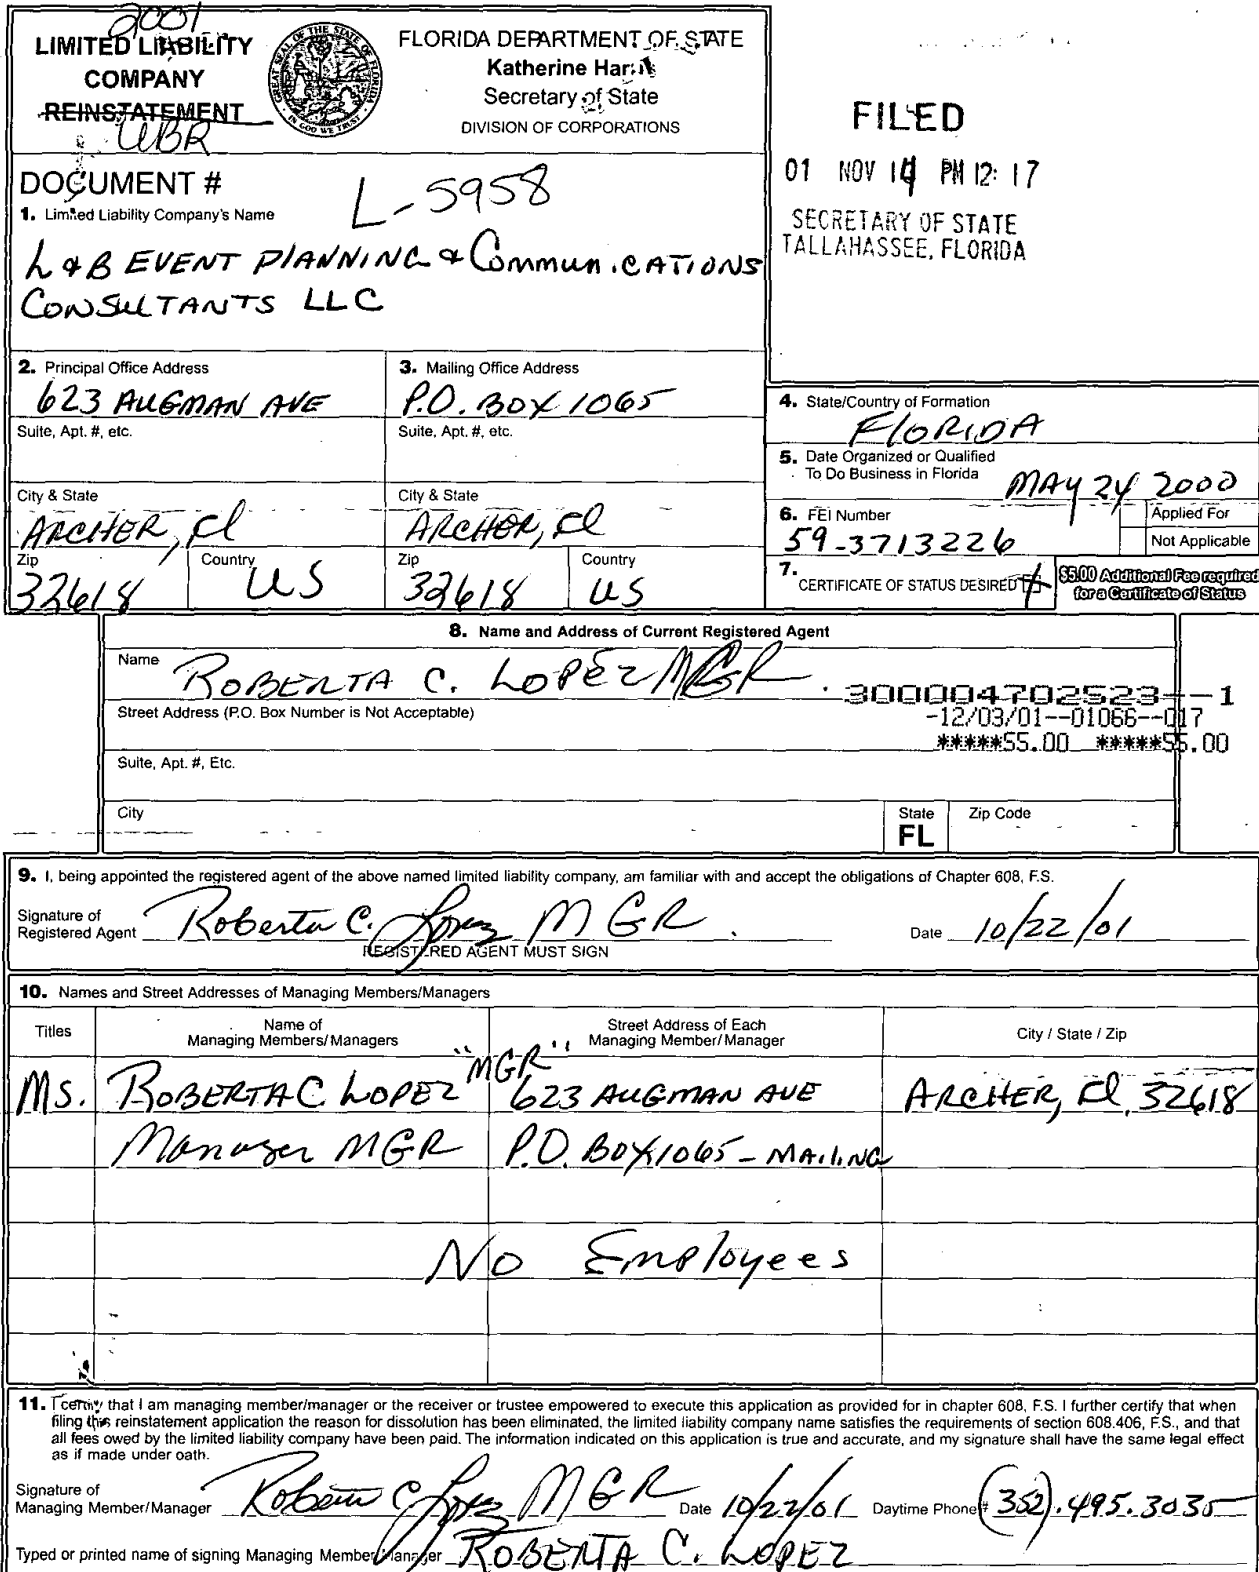 2001
LIMITED LIABILITY
COMPANY
REINSTATEMENT
UBR
GREAT SEAL OF THE STATE OF FLORIDA
IN GOD WE TRUST
FLORIDA DEPARTMENT OF STATE
Katherine
Secretary of State
DIVISION OF CORPORATIONS
FILED
01 NOV 14 PM 12: 17
SECRETARY OF STATE
TALLAHASSEE, FLORIDA
DOCUMENT # L-5958
1. Limited Liability Company's Name
L & B EVENT PLANNING & COMMUNICATIONS
CONSULTANTS LLC
2. Principal Office Address
623 AUGMAN AVE
Suite, Apt. #, etc.
City & State
ARCHER, Fl
Zip
32618
Country
US
3. Mailing Office Address
P.O. BOX 1065
Suite, Apt. #, etc.
City & State
ARCHER, Fl
Zip
32618
Country
US
4. State/Country of Formation
FLORIDA
5. Date Organized or Qualified
To Do Business in Florida MAY 24 2000
6. FEI Number
59-3713226
Applied For
Not Applicable
7. CERTIFICATE OF STATUS DESIRED
$5.00 Additional Fee required
for a Certificate of Status
8. Name and Address of Current Registered Agent
Name ROBERTA C. LOPEZ MGR
Street Address (P.O. Box Number is Not Acceptable)
300004702523--1
-12/03/01--01066--017
*****55.00 *****55.00
Suite, Apt. #, Etc.
City
State
FL
Zip Code
9. I, being appointed the registered agent of the above named limited liability company, am familiar with and accept the obligations of Chapter 608, F.S.
Signature of
Registered Agent Roberta C. Lopez MGR.
REGISTERED AGENT MUST SIGN
Date 10/22/01
10. Names and Street Addresses of Managing Members/Managers
Titles
Name of
Managing Members/Managers
Street Address of Each
Managing Member/Manager
City / State / Zip
MS. ROBERTA C LOPEZ "MGR" 623 AUGMAN AVE ARCHER, Fl, 32618
Manager MGR P.O. BOX 1065 - MAILING
No Employees
11. I certify that I am managing member/manager or the receiver or trustee empowered to execute this application as provided for in chapter 608, F.S. I further certify that when
filing this reinstatement application the reason for dissolution has been eliminated, the limited liability company name satisfies the requirements of section 608.406, F.S., and that
all fees owed by the limited liability company have been paid. The information indicated on this application is true and accurate, and my signature shall have the same legal effect
as if made under oath.
Signature of
Managing Member/Manager Roberta C. Lopez MGR Date 10/22/01 Daytime Phone # (352).495.3035
Typed or printed name of signing Managing Member/Manager ROBERTA C. LOPEZ